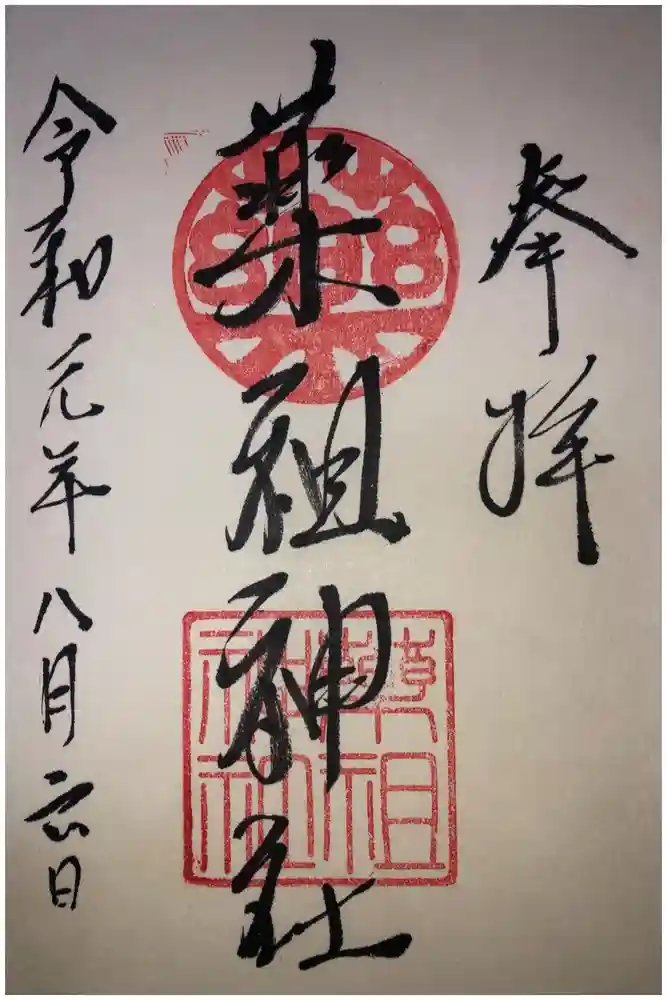 奉拝
薬祖神社
薬祖
神社
令和元年八月六日